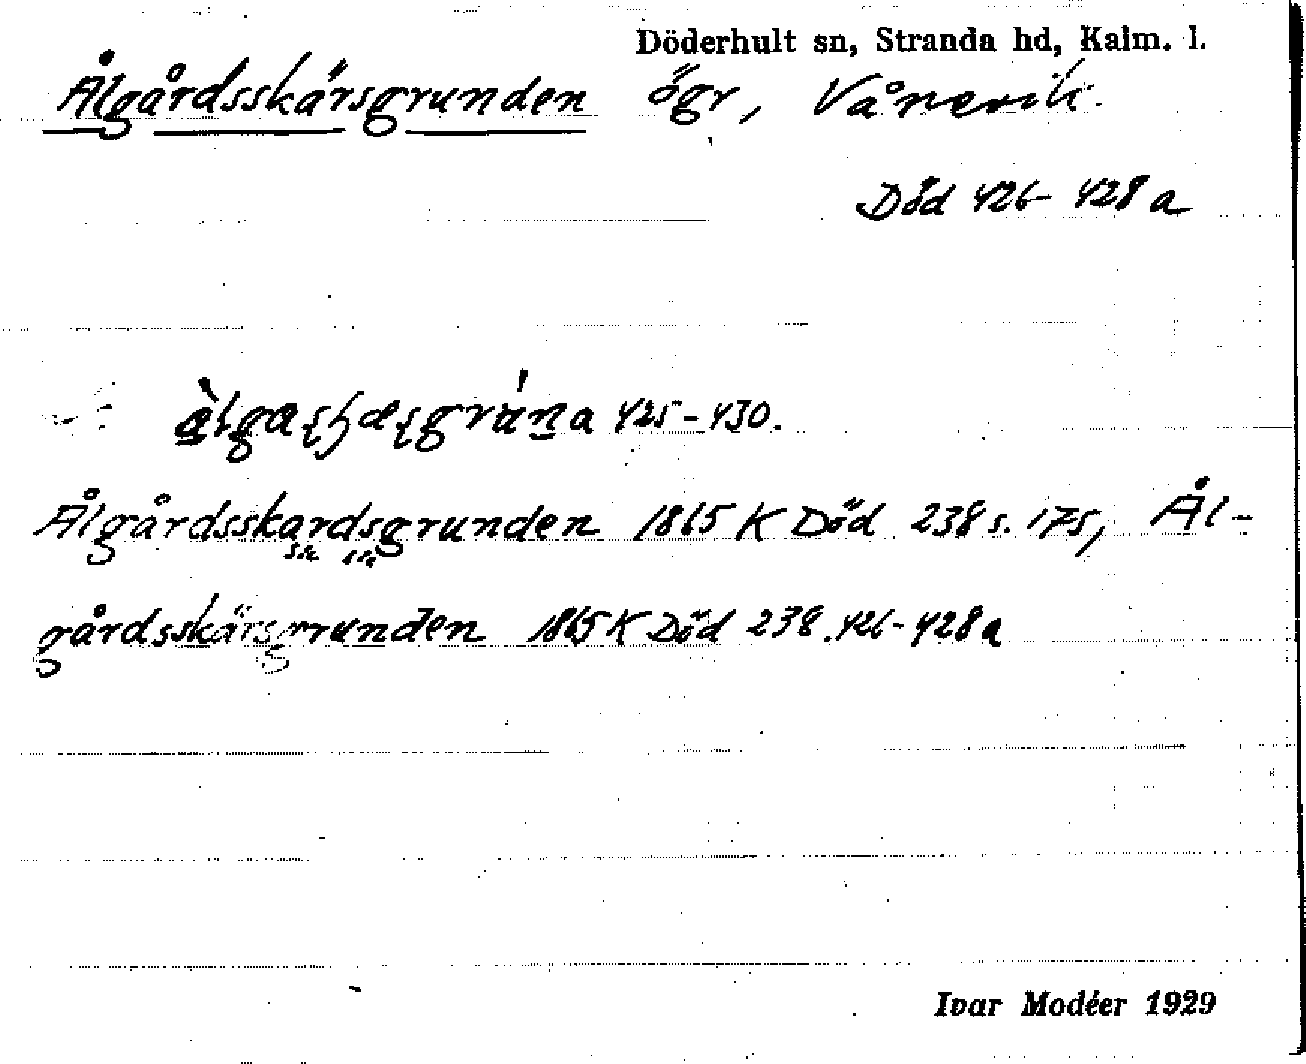 Döderhult sn, Stranda hd, Kalm. l.
Ålgårdsskärsgrunden ögr, Vånevik.
Död 426-428 a
425-430.
Ålgårdsskardsgrunden 1865 K Död 238 s. 175, Ål-
sic sic
gårdsskärsgrunden 1865 K Död 238. 426-428 a
Ivar Modéer 1929